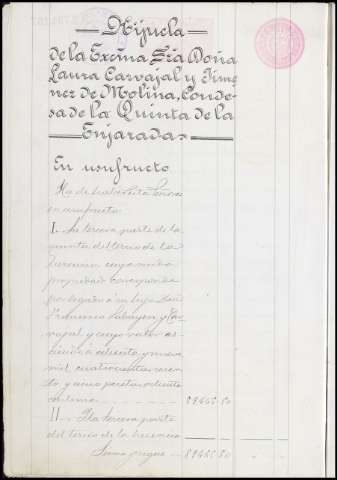 Hijuela
de la Excma Sra Doña
Laura Carvajal y Jimé
nez de Molina, Conde-
sa de la Quinta de la
Enjarada
En usufructo
Ha de haber esta Señora
en usufructo
I. La tercera parte de la
quinta del tercio de la
herencia cuya nuda
propiedad corresponde
por legado á su hijo Don
Francisco y Car
vajal y cuyo valor as-
ciende á ochenta y nueve
mil cuatrocientas
ta y cinco pesetas ochenta
céntimos 89465 80
II. La tercera parte
del tercio de la herencia
Suma y sigue 89465 80